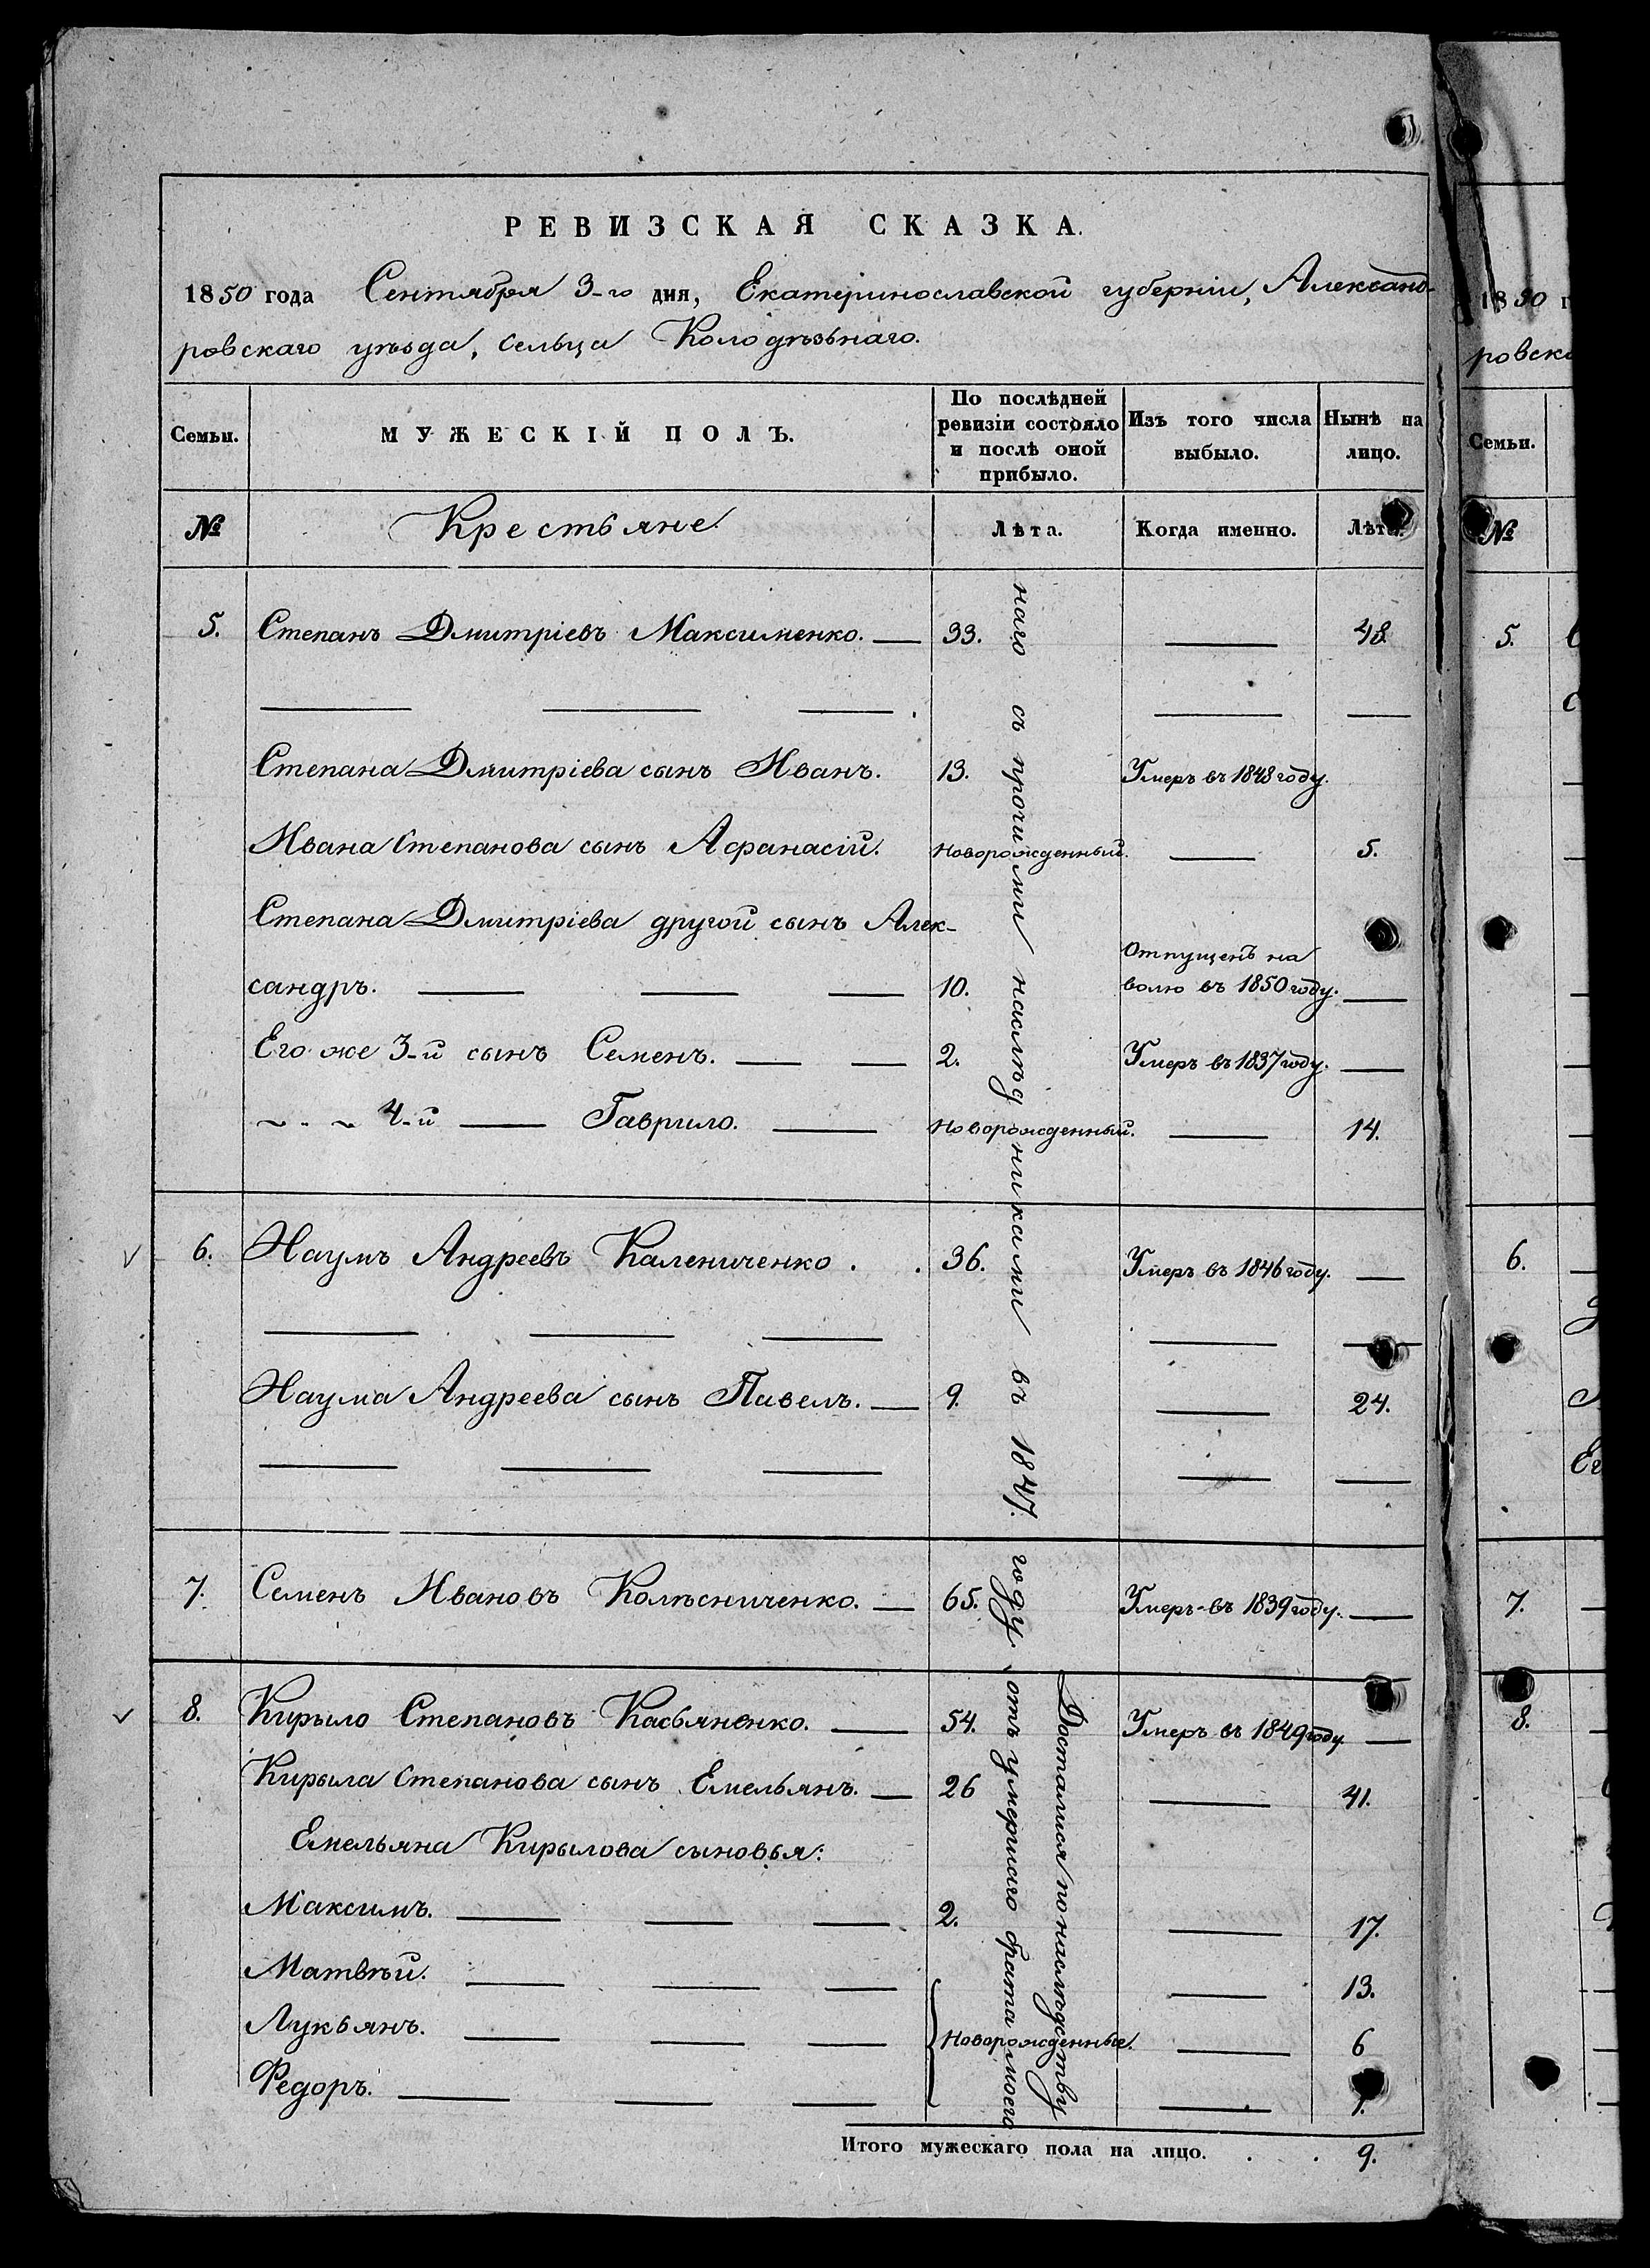 РЕВИЗСКАЯ СКАЗКА.
1850 года Сентября 3-го дня, Екатеринославской губернiи, Александ-
ровскаго уѣзда, сельца Колодѣзьнаго.
Семьи.
МУЖЕСКIЙ ПОЛЪ.
По послѣдней ревизiи состояло и послѣ оной прибыло.
Изъ того числа выбыло.
Нынѣ на лицо.
№ Крестьяне. Лѣта. Когда именно. Лѣта.
5. Степанъ Дмитрiевъ Максименко. — 33. — 48.
Степана Дмитрiева сынъ Иванъ. 13. Умеръ въ 1848 году.
Ивана Степанова сынъ Афанасiй. Новорожденный. — 5.
Степана Дмитрiева другой сынъ Алек-
сандръ. — 10. Отпущенъ на волю въ 1850 году. —
Его же 3-й сынъ Семенъ. — 2. Умеръ въ 1837 году. —
~ . ~ 4-й — Гаврило. — Новорожденный. — 14.
6. Наумъ Андреевъ Калениченко . . 36. Умеръ въ 1846 году. —
Наума Андреева сынъ Павелъ. — 9. — 24.
7. Семенъ Ивановъ Колѣсниченко. — 65. Умеръ въ 1839 году. —
8. Кирыло Степановъ Касьяненко. — 54. Умеръ въ 1849 году —
Кирыла Степанова сынъ Емельянъ. — 26 — 41.
Емельяна Кирылова сыновья:
Максимъ. — 2. — 17.
Матвѣй. — 13.
Лукьянъ. — Новорожденные. — 6
Федоръ. — 1.
Досталися по наслѣдству
отъ умершаго брата моего
наго съ прочими наслѣдниками въ 1847. году
Итого мужескаго пола на лицо. . . 9.
1850 г
ровска
Семьи.
№
5.
6.
7.
8.